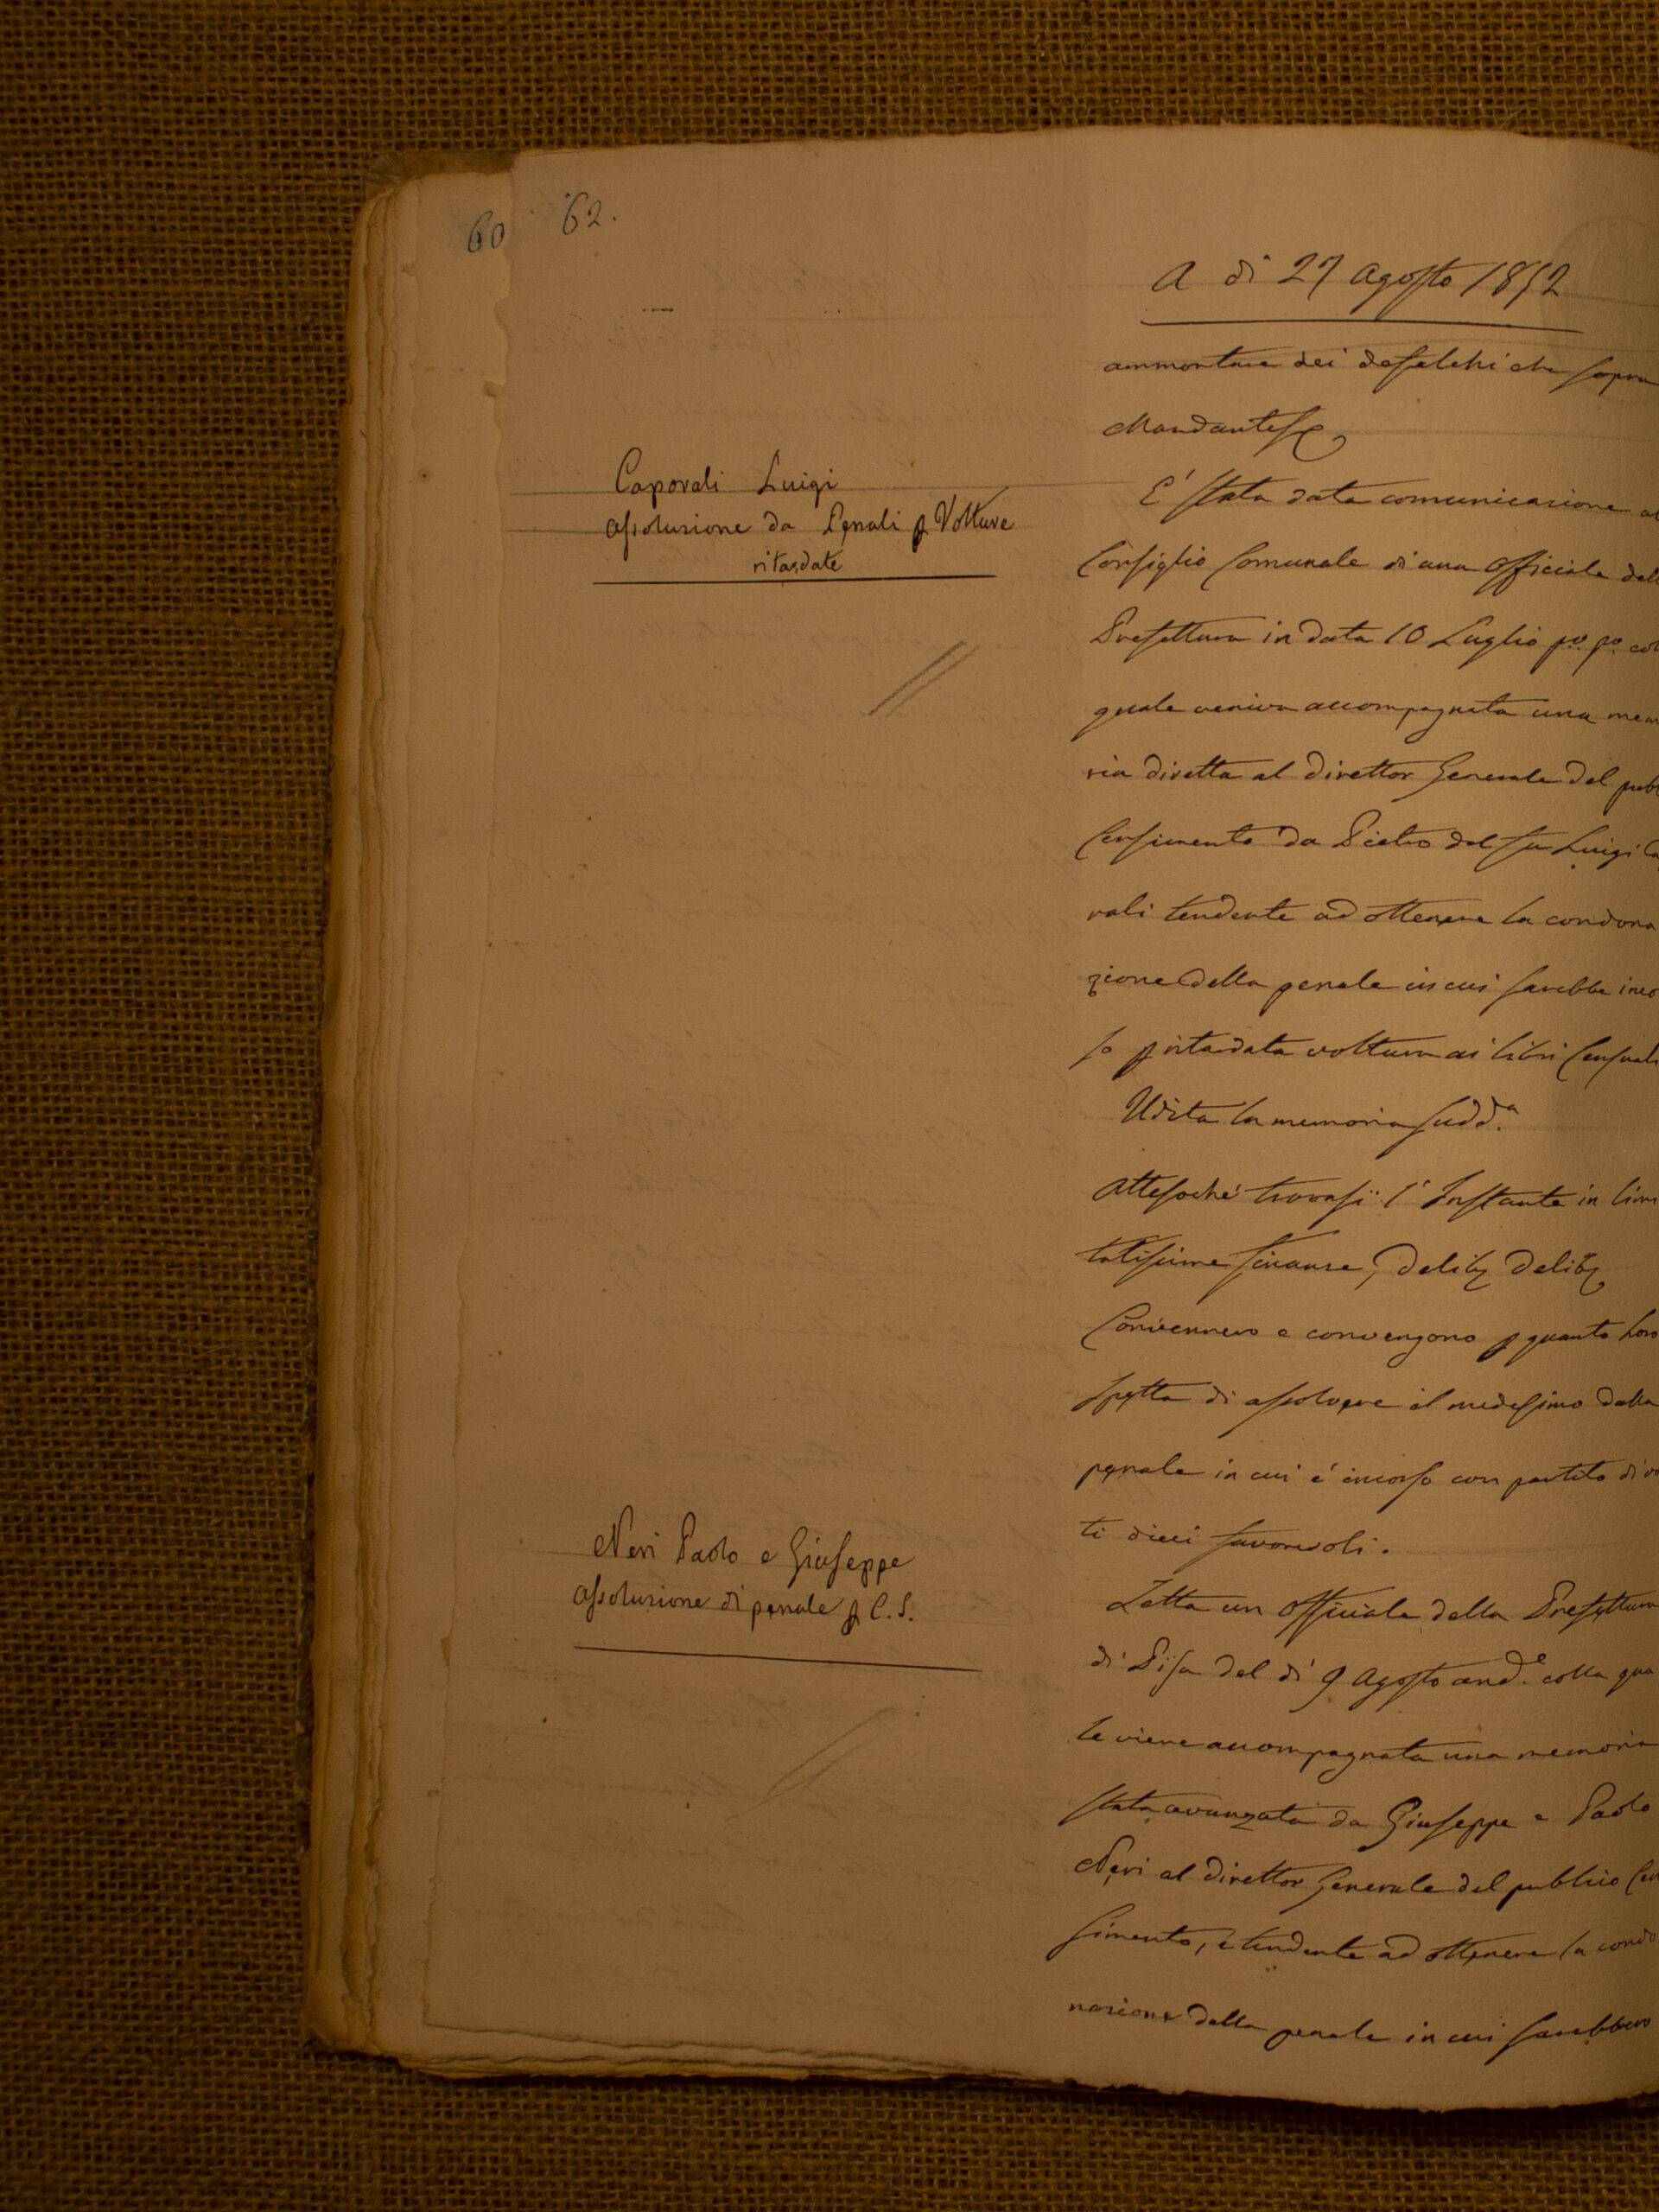 60 62.
A dì 27 Agosto 1852
ammontare dei defalchi che sopra
Mandantes
Caporali Luigi
assoluzione da Penali p Volture
ritardate
E' stata data comunicazione al
Consiglio Comunale di una Officiale dell
Prefettura in data 10 Luglio po. po. col
quale veniva accompagnata una mem
ria diretta al Direttor Generale del pubb
Censimento da Pietro del fu Luigi Ca
rali tendente ad ottenere la condona
zione della penale in cui sarebbe inco
so p ritardata voltura ai libri Censuali
Udita la memoria sudd.a
Attesoché trovasi l'Instante in limi
tatissime finanze, Delib Delib
Convennero e convengono p quanto loro
spetta di assolvere il medesimo dalla
penale in cui é incorso con partito di vo
ti dieci favorevoli.
Neri Paolo e Giuseppe
assoluzione di penale p C. S.
Letta un Officiale della Prefettura
di Pisa del dì 9 Agosto and.e colla qua
le viene accompagnata una memoria
stata avanzata da Giuseppe e Paolo
Neri al Direttor Generale del pubblico Cen
simento, e tendente ad ottenere la condo
nazione della penale in cui sarebbero